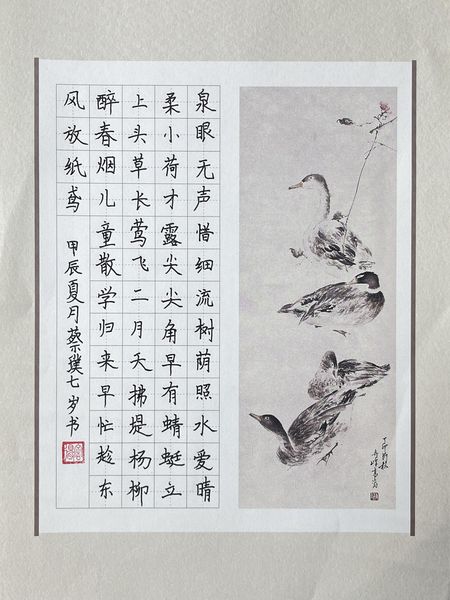 泉眼无声惜细流树荫照水爱晴
柔小荷才露尖尖角早有蜻蜓立
上头草长莺飞二月天拂堤杨柳
醉春烟儿童散学归来早忙趁东
风放纸鸢 甲辰夏月蔡璞七岁书